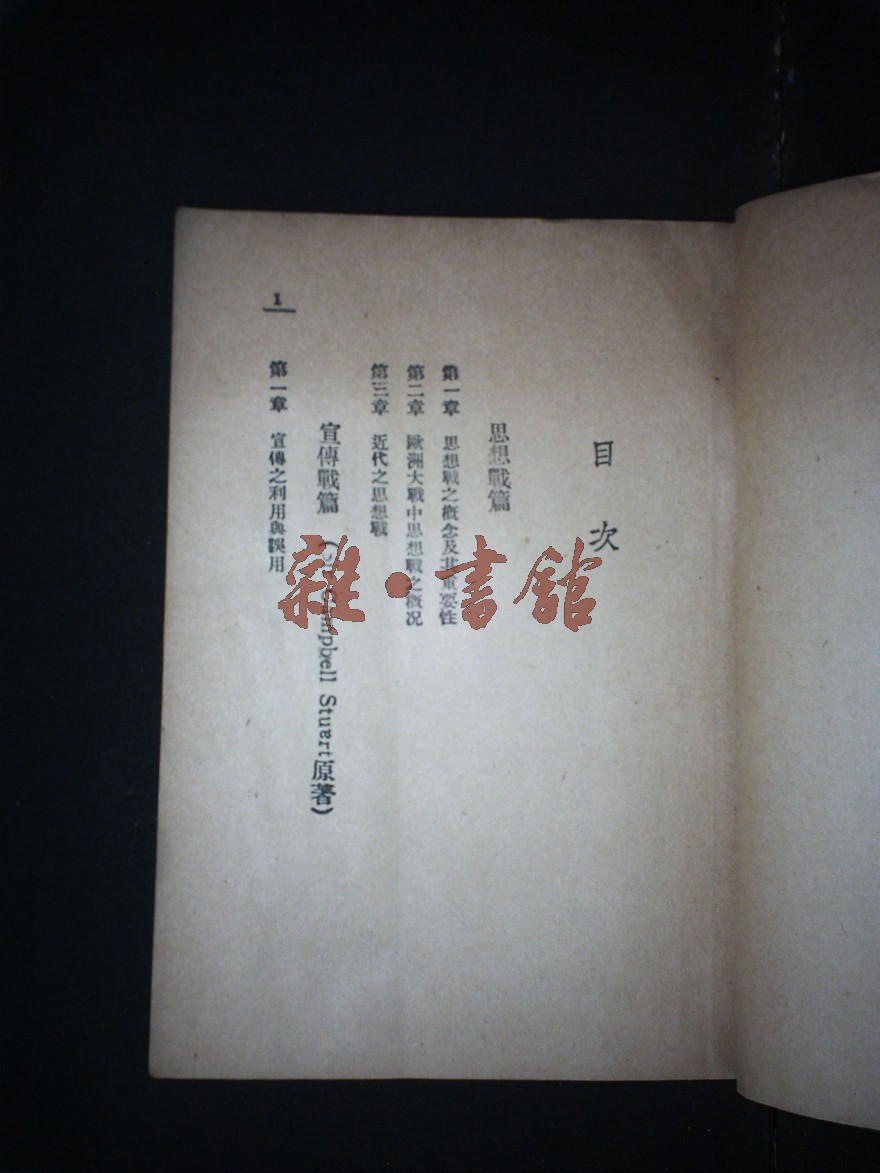 目次
思想戰篇
第一章 思想戰之概念及其重要性
第二章 歐洲大戰中思想戰之概況
第三章 近代之思想戰
宣傳戰篇 (Campbell Stuart原著)
第一章 宣傳之利用與誤用
1
雜·書館